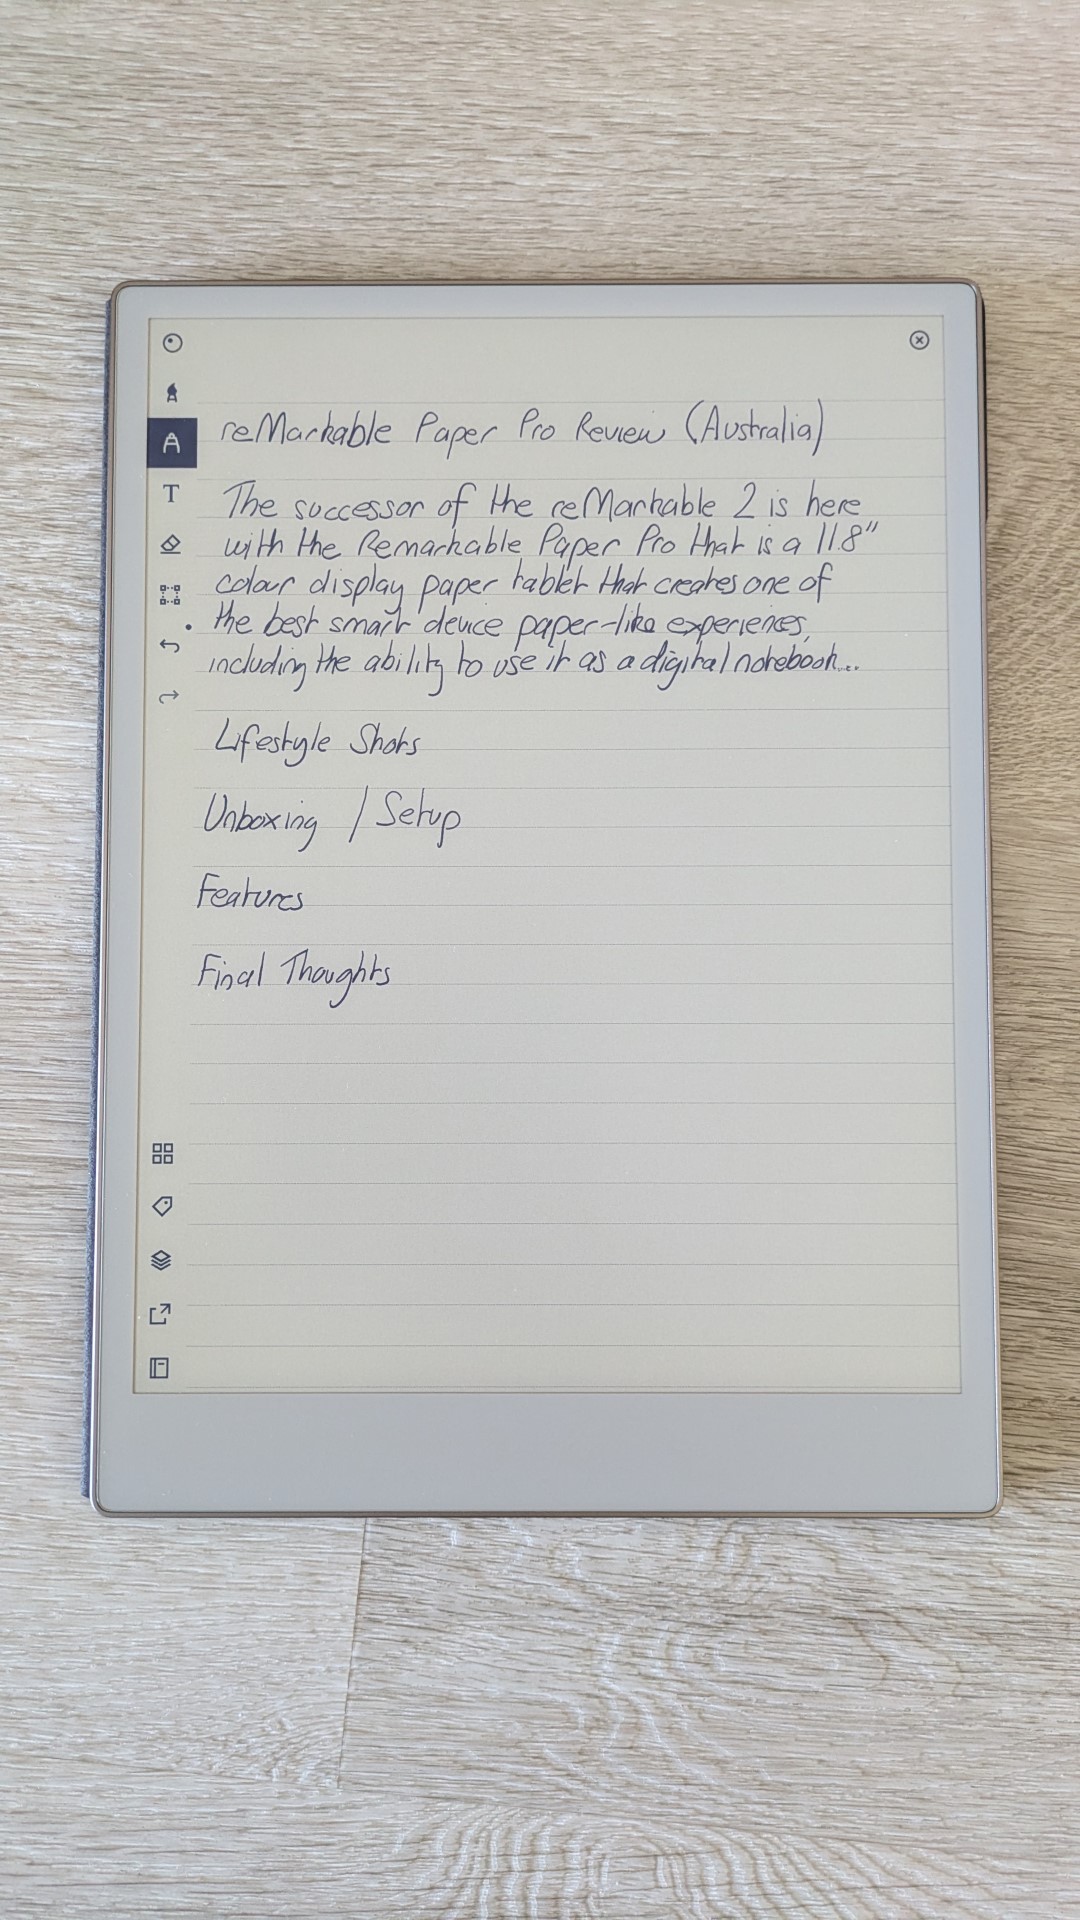 reMarkable Paper Pro Review (Australia)
The successor of the reMarkable 2 is here
with the Remarkable Paper Pro that is a 11.8"
colour display paper tablet that creates one of
the best smart device paper-like experiences,
including the ability to use it as a digital notebook...
Lifestyle Shots
Unboxing / Setup
Features
Final Thoughts